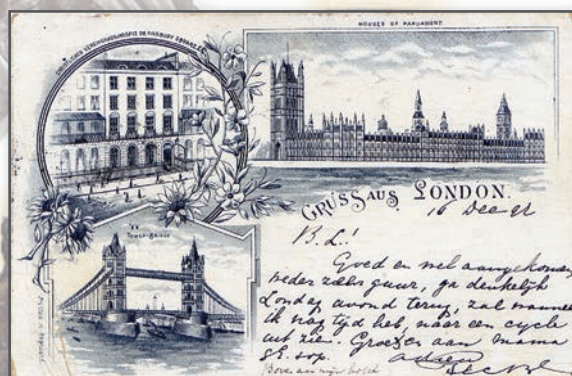 HOUSES OF PARLIAMENT.
TOWER-BRIDGE
GRUSS AUS LONDON.
16 Dec
B. L.!
Goed en wel aangekomen
weder zeer guur, ga denkelijk
Zondag avond terug, zal wanneer
ik nog tijd heb, naar een cycle
uit zien. Groeten aan mama
Boven aan mijn hotel